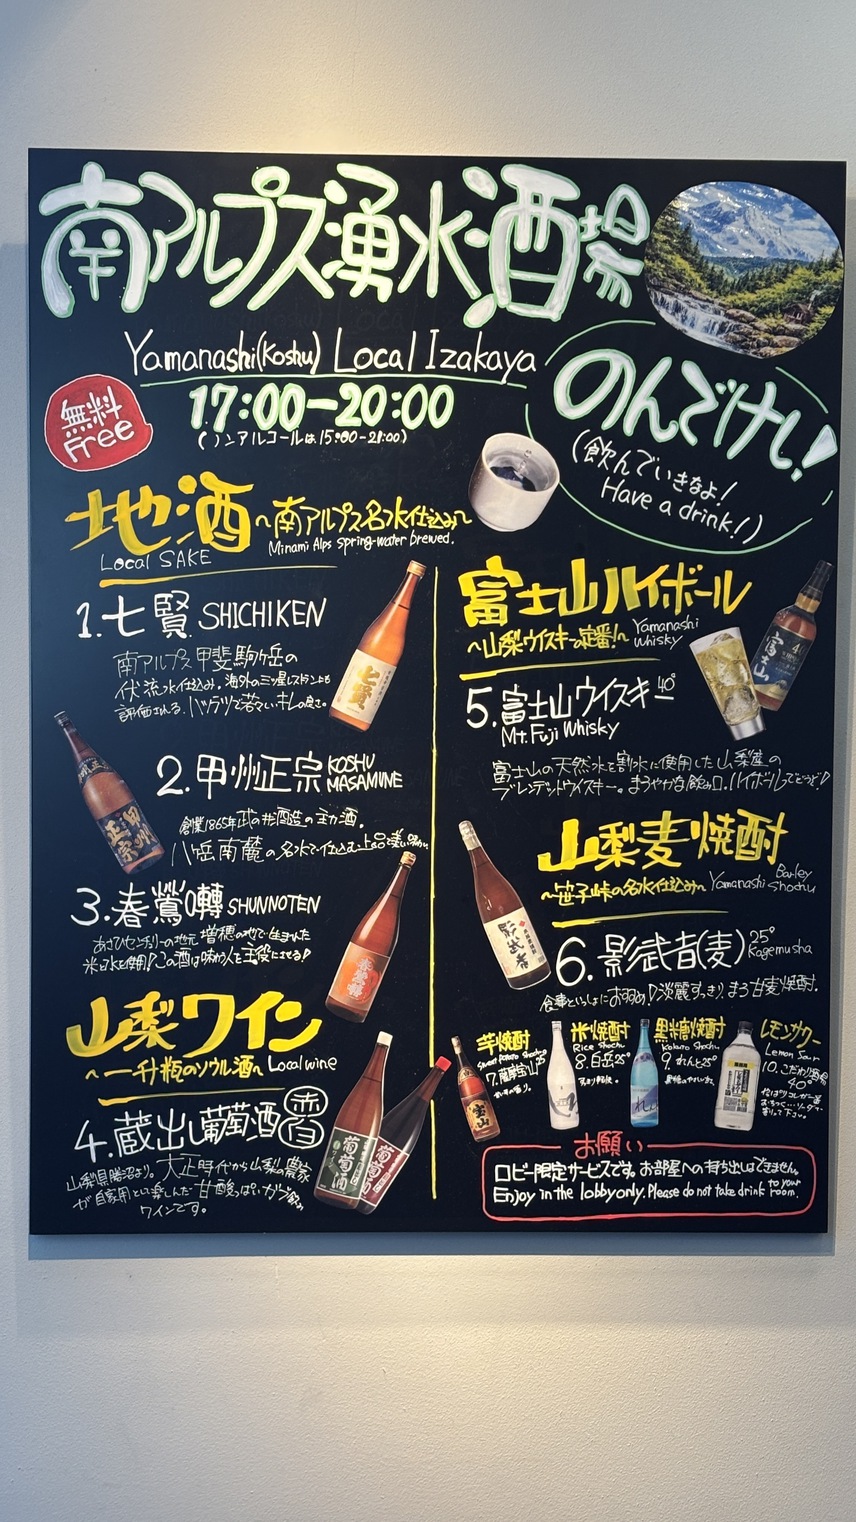 南アルプス湧水酒場
Yamanashi(Koshu) Local Izakaya
無料
Free
17:00-20:00
(ノンアルコールは15:00-21:00)
のんでけし!
(飲んでいきなよ!
Have a drink!)
地酒 ~南アルプス名水仕込み~
Local SAKE Minami Alps spring-water brewed.
1.七賢 SHICHIKEN
南アルプス甲斐駒ヶ岳の
伏流水仕込み。海外の三ツ星レストンも
評価される。ハツラツで若々しいキレの良さ。
七賢
2.甲州正宗 KOSHU
MASAMINE
創業1865年武の井酒造の主力酒。
八ヶ岳南麓の名水で仕込む上品で
甲州
正宗
3.春鶯囀 SHUNNOTEN
増穂の地で生まれた
米と水を使用!この酒は味わう人を主役にさせる!
春鶯囀
山梨ワイン
~一升瓶のソウル酒~ Local wine
4.蔵出し葡萄酒 赤白
山梨県勝沼より。大正時代から山梨の農家
が自家用として楽しんだ甘酸っぱい
ワインです。
葡萄酒
葡萄酒
富士山ハイボール
~山梨ウイスキーの定番!~ Yamanashi
Whisky
富士山
5.富士山ウイスキー 40°
Mt.Fuji Whisky
富士山の天然水を割水に使用した山梨産の
ブレンデットウイスキー。まろやかな飲み口。ハイボールでどうぞ!
山梨麦焼酎
~笹子峠の名水仕込み~ Yamanashi Barley
Shochu
影武者
6.影武者(麦) 25°
Kagemusha
食事といっしょにおすすめ!淡麗すっきり、まろ甘麦焼酎。
芋焼酎
Sweet Potato Shochu
7.薩摩宝山 25°
宝山
米焼酎
Rice Shochu
8.白岳 25°
黒糖焼酎
Kokuto Shochu
9.れんと 25°
れんと
レモンサワー
Lemon Sour
10.こだわり酒場
40°
お願い
ロビー限定サービスです。お部屋への持ち出しはできません。
Enjoy in the lobby only. Please do not take drink to your room.